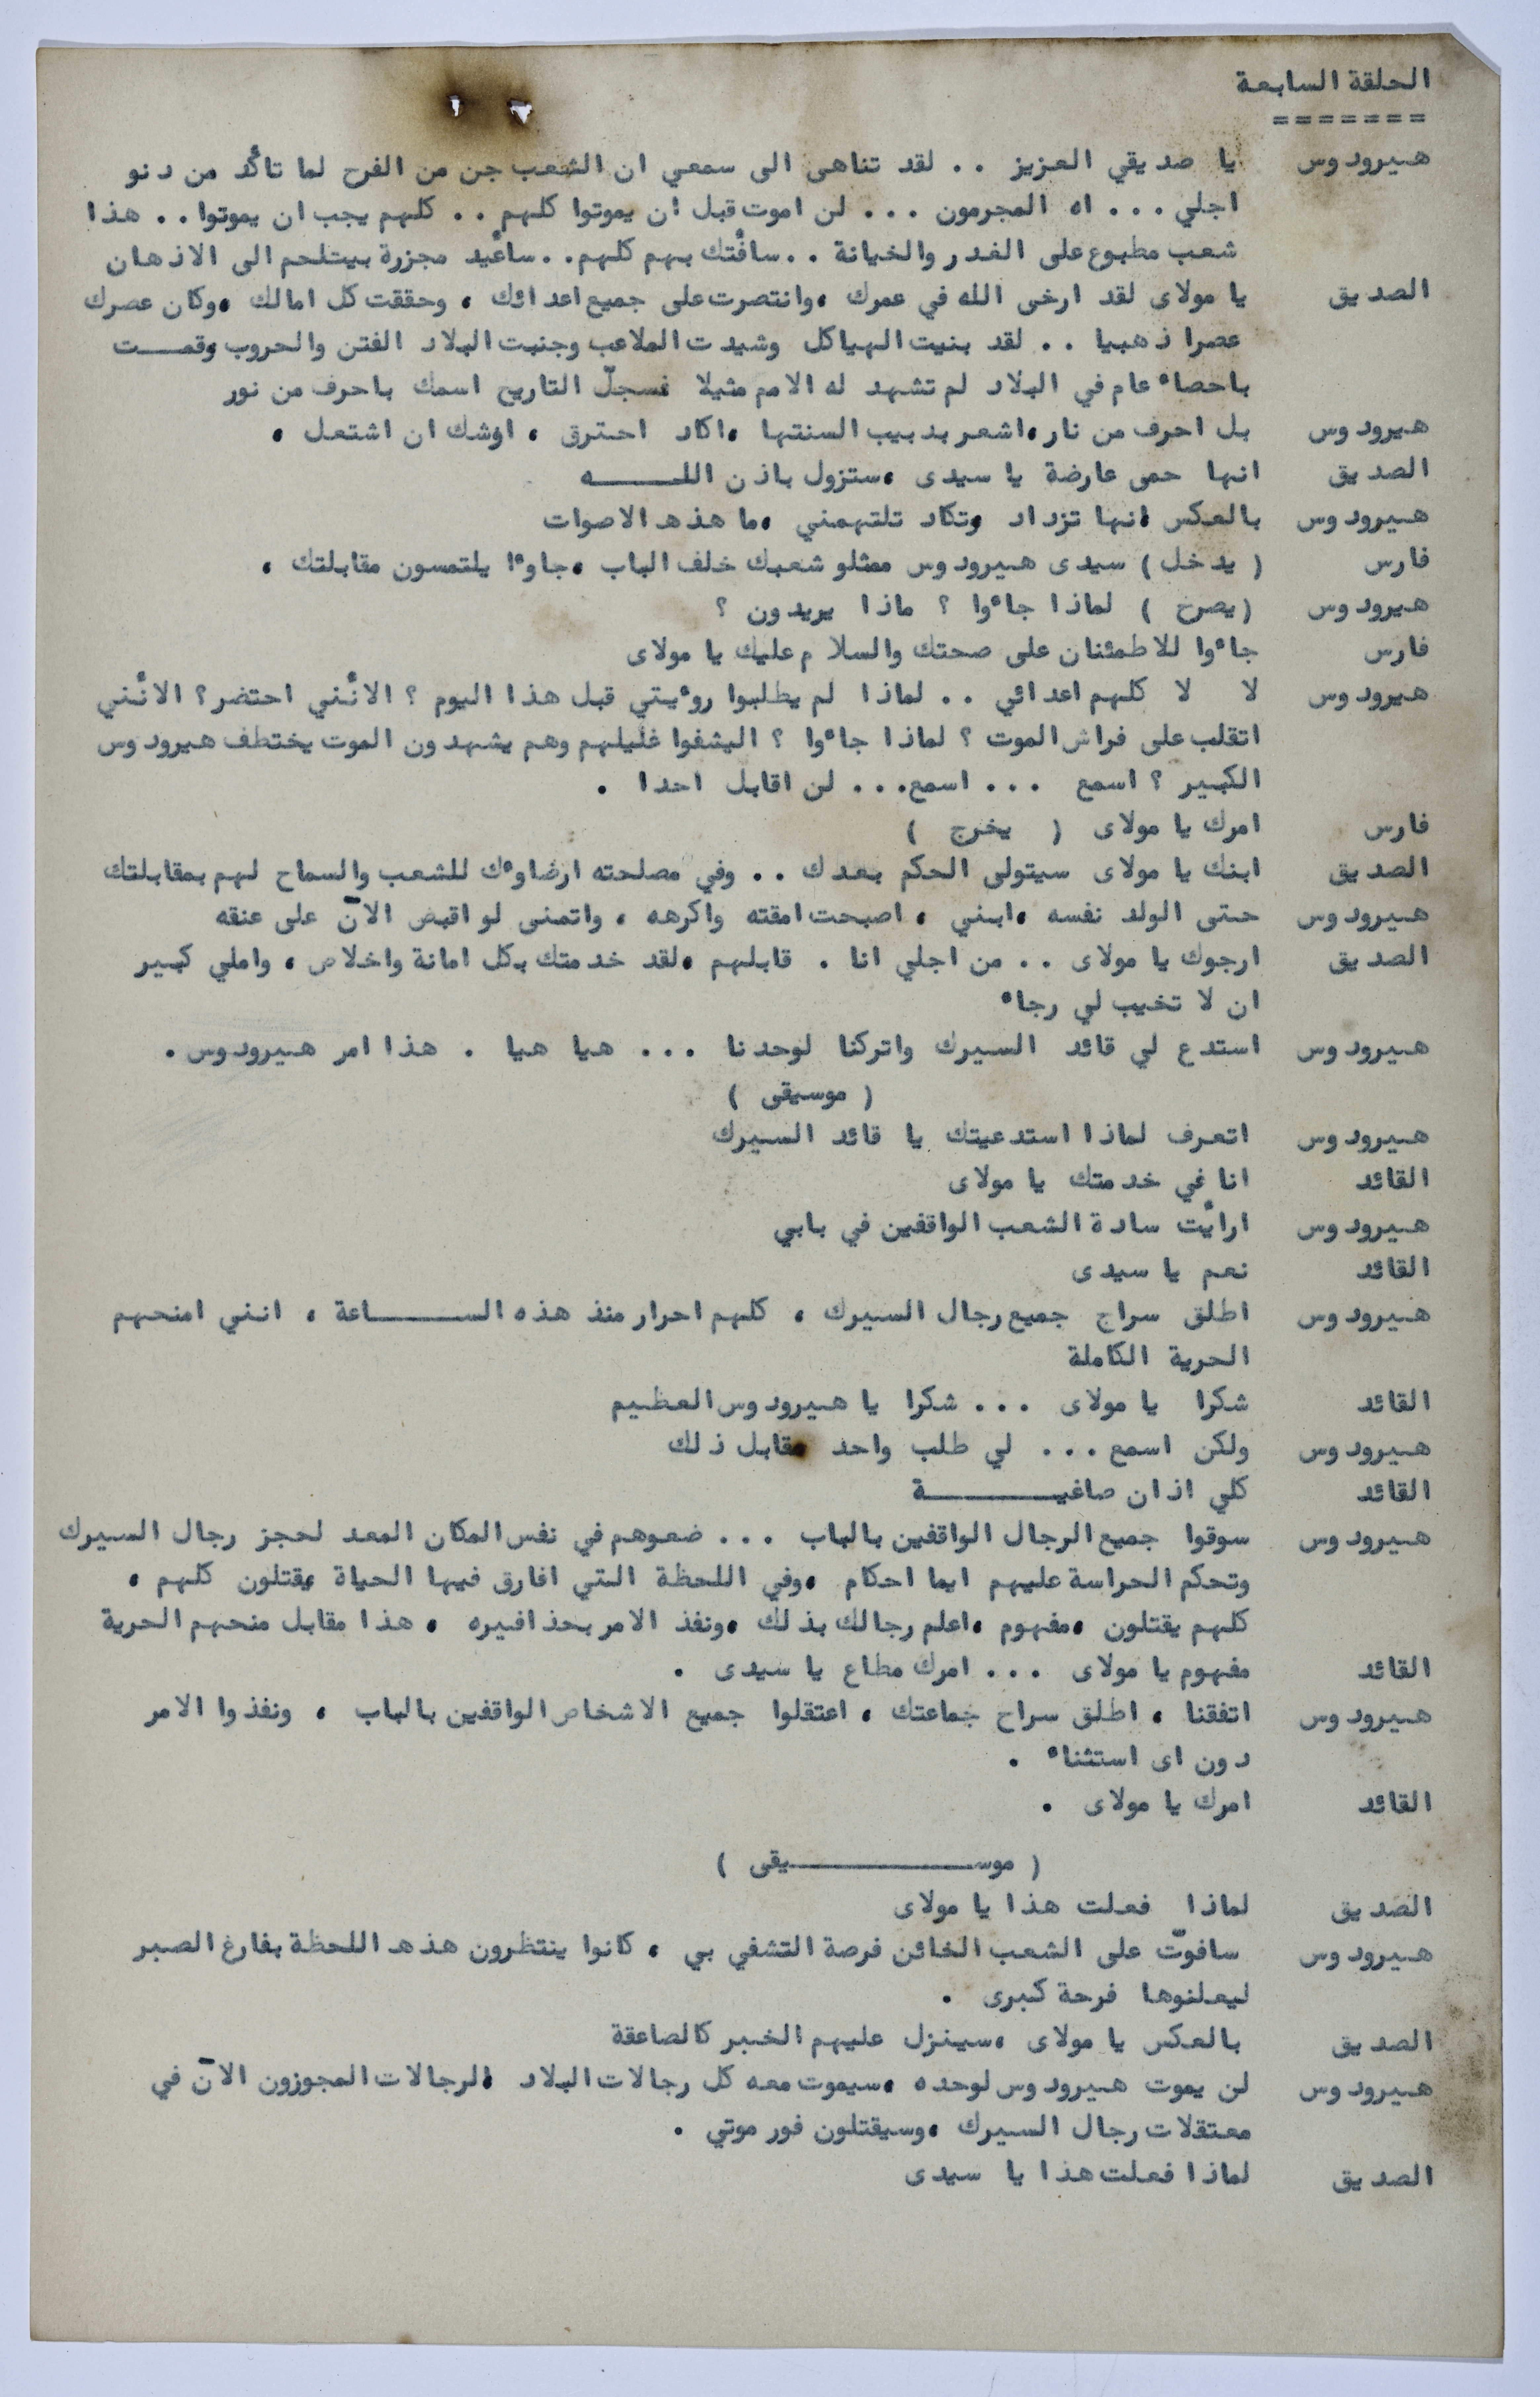 الحلقة السابعة
=======
هيرودوس يا صديقي العزيز .. لقد تناهى الى سمعي ان الشعب جن من الفرح لما تأكد من دنو
اجلي ... اه المجرمون ... لن اموت قبل ان يموتوا كلهم .. كلهم يجب ان يموتوا .. هذا
شعب مطبوع على الغدر والخيانة .. سأفتك بهم كلهم .. سأعيد مجزرة بيتلحم الى الاذهان
الصديق يا مولاى لقد ارخى الله في عمرك ، وانتصرت على جميع اعدائك ، وحققت كل امالك ، وكان عصرك
عصرا ذهبيا .. لقد بنيت الهياكل وشيدت الملاعب وجنبت البلاد الفتن والحروب وقمـــت
باحصاء عام في البلاد لم تشهد له الامم مثيلا فسجلّ التاريخ اسمك باحرف من نور
هيرودوس بل احرف من نار ، اشعر بدبيب السنتها ، اكاد احترق ، اوشك ان اشتعل ،
الصديق انها حمى عارضة يا سيدى ، ستزول باذن اللـــــه
هيرودوس بالعكس انها تزداد وتكاد تلتهمني ، ما هذه الاصوات
فارس ( يدخل ) سيدى هيرودوس ممثلو شعبك خلف الباب ، جاوءا يلتمسون مقابلتك ،
هيرودوس ( يصرخ ) لماذا جاءوا ؟ ماذا يريدون ؟
فارس جاءوا للاطمئنان على صحتك والسلام عليك يا مولاى
هيرودوس لا لا كلهم اعدائي .. لماذا لم يطلبوا روءيتي قبل هذا اليوم ؟ الانّني احتضر ؟ الانّني
اتقلب على فراش الموت ؟ لماذا جاءوا ؟ اليشفوا غليلهم وهم يشهدون الموت يختطف هيرودوس
الكبير ؟ اسمع ... اسمع ... لن اقابل احدا .
فارس امرك يا مولاى ( يخرج )
الصديق ابنك يا مولاى سيتولى الحكم بعدك .. وفي مصلحته ارضاوءك للشعب والسماح لهم بمقابلتك
هيرودوس حتى الولد نفسه ، ابني ، اصبحت امقته واكرهه ، واتمنى لو اقبض الآن على عنقه
الصديق ارجوك يا مولاى .. من اجلي انا . قابلهم ، لقد خدمتك بكل امانة واخلاص ، واملي كبير
ان لا تخيب لي رجاء
هيرودوس استدع لي قائد السيرك واتركنا لوحدنا ... هيا هيا . هذا امر هيرودوس .
( موسيقى )
هيرودوس اتعرف لماذا استدعيتك يا قائد السيرك
القائد انا في خدمتك يا مولاى
هيرودوس ارأيت سادة الشعب الواقفين في بابي
القائد نعم يا سيدى
هيرودوس اطلق سراج جميع رجال السيرك ، كلهم احرار منذ هذه الســــــاعة ، انني امنحهم
الحرية الكاملة
القائد شكرا يا مولاى ... شكرا يا هيرودوس العظيم
هيرودوس ولكن اسمع ... لي طلب واحد مقابل ذلك
القائد كلي اذان صاغيــــــــة
هيرودوس سوقوا جميع الرجال الواقفين بالباب ... ضعوهم في نفس المكان المعد لحجز رجال السيرك
وتحكم الحراسة عليهم ايما احكام ، وفي اللحظة التي افارق فيها الحياة يقتلون كلهم ،
كلهم يقتلون ، مفهوم ، اعلم رجالك بذلك ، ونفذ الامر بحذافيره ، هذا مقابل منحهم الحرية
القائد مفهوم يا مولاى ... امرك مطاع يا سيدى .
هيرودوس اتفقنا ، اطلق سراح جماعتك ، اعتقلوا جميع الاشخاص الواقفين بالباب ، ونفذوا الامر
دون اى استثناء .
القائد امرك يا مولاى .
( موســــــــــــيقى )
الصديق لماذا فعلت هذا يا مولاى
هيرودوس سافوتّ على الشعب الخائن فرصة التشفي بي ، كانوا ينتظرون هذه اللحظة بفارغ الصبر
ليعلنوها فرحة كبرى .
الصديق بالعكس يا مولاى ، سينزل عليهم الخبر كالصاعقة
هيرودوس لن يموت هيرودوس لوحده ، سيموت معه كل رجالات البلاد الرجالات المجوزون الآن في
معتقلات رجال السيرك ، وسيقتلون فور موتي .
الصديق لماذا فعلت هذا يا سيدى